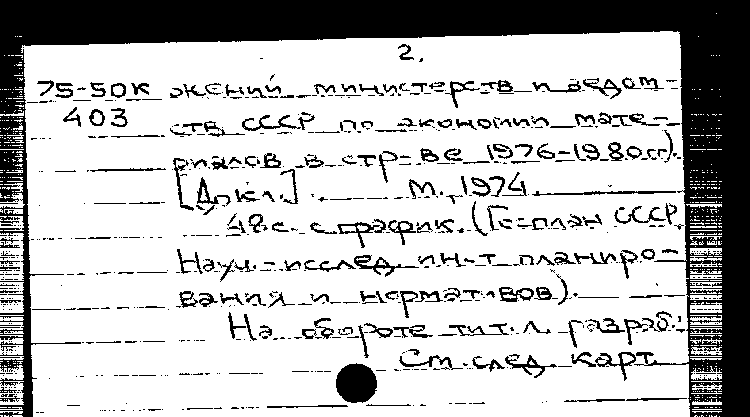 2.
75-50К жений министерств и ведом-
403 ств СССР по экономии мате-
риалов в стр-ве 1976-1980гг).
[Докл.]. М., 1974.
48с. с график. (Госплан СССР.
Науч.-исслед. ин-т планиро-
вания и нормативов).
На обороте тит.л. разраб.:
См.след. карт.